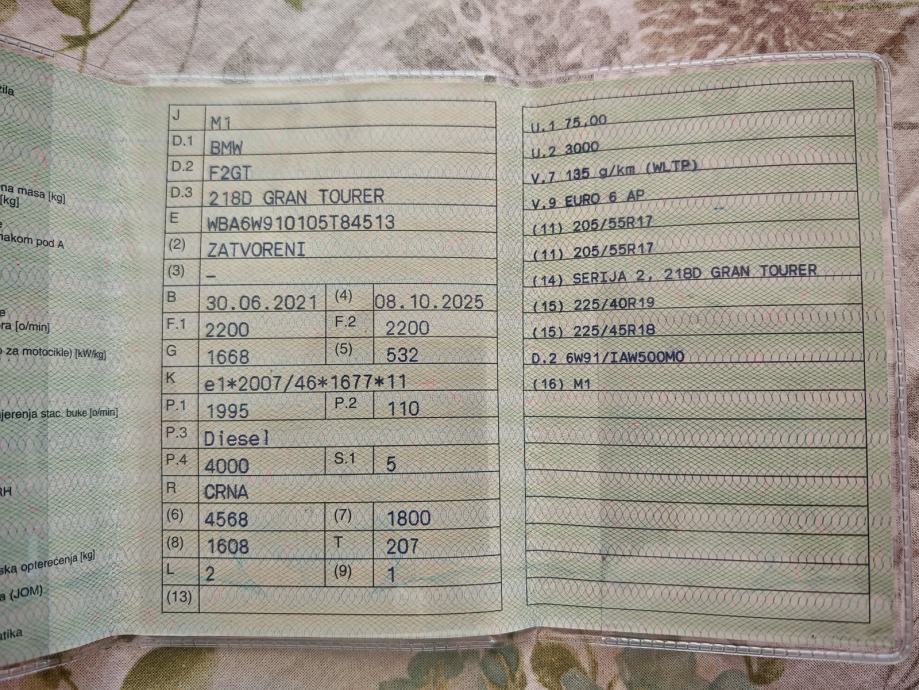 na masa [kg]
[kg]
pod A
[o/min]
za motocikle) [kW/kg]
stac. buke [o/min]
RH
opterećenja [kg]
(JOM)
J M1
D.1 BMW
D.2 F2GT
D.3 218D GRAN TOURER
E WBA6W910105T84513
(2) ZATVORENI
(3) –
B 30.06.2021 (4) 08.10.2025
F.1 2200 F.2 2200
G 1668 (5) 532
K e1*2007/46*1677*11
P.1 1995 P.2 110
P.3 Diesel
P.4 4000 S.1 5
R CRNA
(6) 4568 (7) 1800
(8) 1608 T 207
L 2 (9) 1
(13)
U.1 75,00
U.2 3000
V.7 135 g/km (WLTP)
V.9 EURO 6 AP
(11) 205/55R17
(11) 205/55R17
(14) SERIJA 2, 218D GRAN TOURER
(15) 225/40R19
(15) 225/45R18
D.2 6W91/IAW500M0
(16) M1